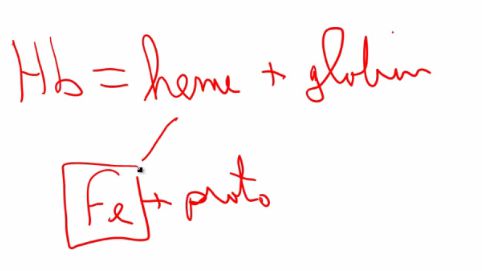 Hb = heme + globin
Fe + proto